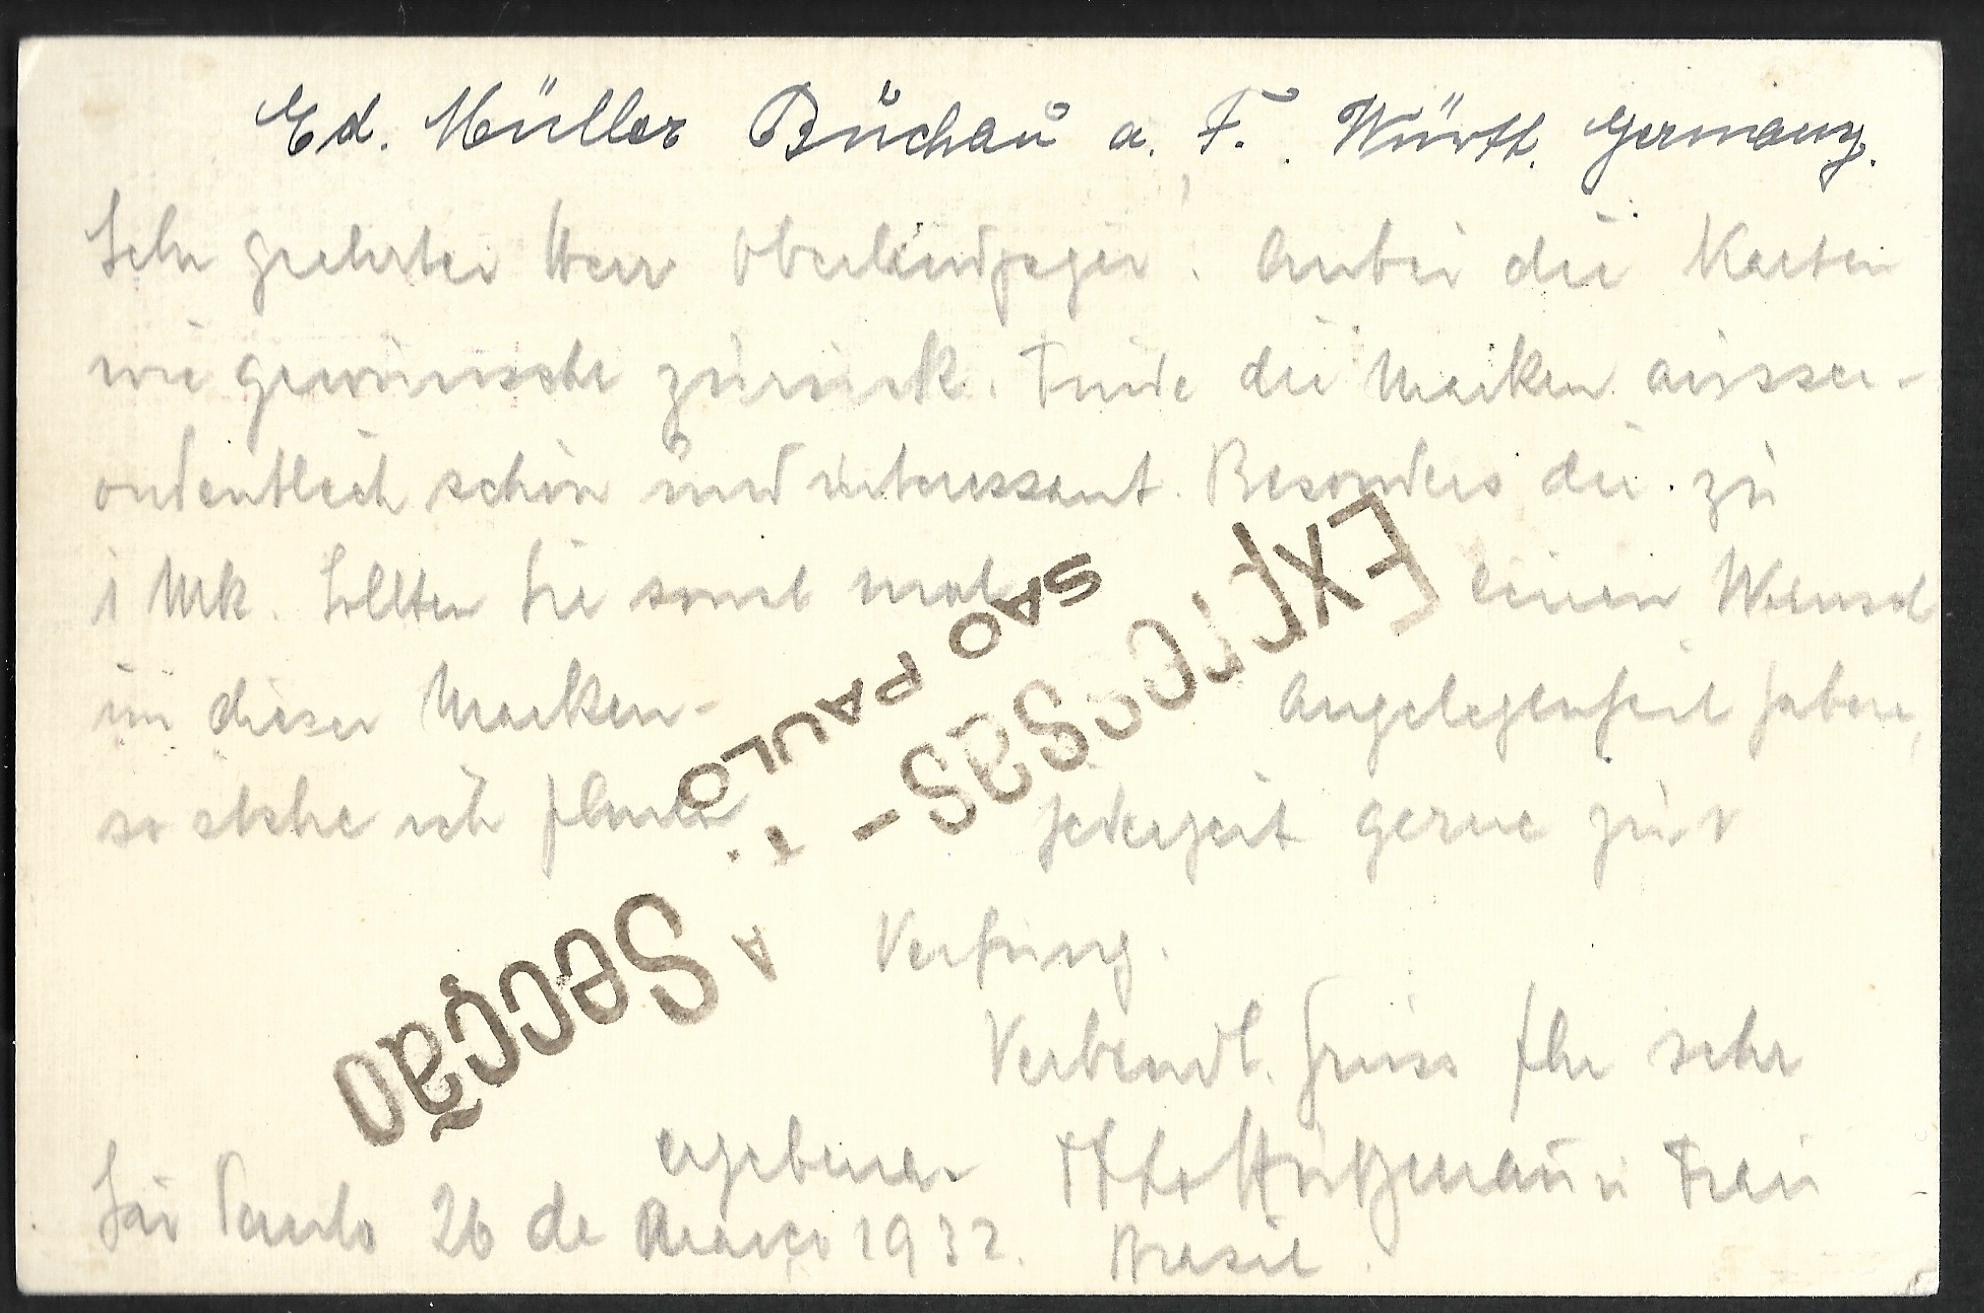 Ed. Müller Buchau a. F. Württ. Germany.
Sehr geehrter Herr Oberlandjäger! Anbei die Karten
wie gewünscht zurück. Finde die Marken ausser-
ordentlich schön und interessant. Besonders die zu
1 Mk. Sollten Sie sonst mal einen Wunsch
in dieser Marken- Angelegenheit haben,
so stehe ich Ihnen jederzeit gerne zur
Verfüng.
Verbindl. Gruss Ihr sehr
ergebener Otto u Frau
São Paulo 26 de Março 1932. Brasil.
Expressas -
SAO PAULO
A T.
Secção